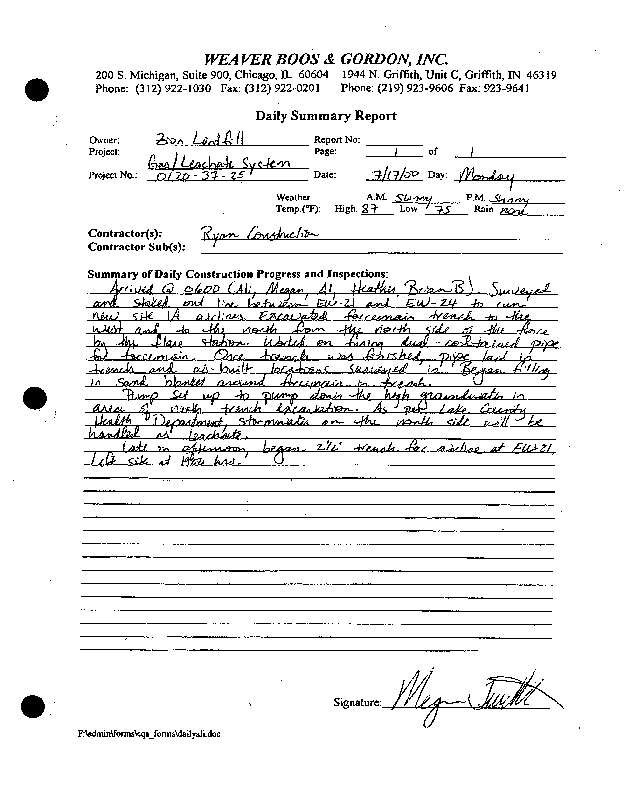 WEAVER BOOS & GORDON, INC.
200 S. Michigan, Suite 900, Chicago, IL 60604 1944 N. Griffith, Unit C, Griffith, IN 46319
Phone: (312) 922-1030 Fax: (312) 922-0201 Phone: (219) 923-9606 Fax: 923-9641
Daily Summary Report
Owner: Zion Landfill Report No:
Project: Gas/Leachate System Page: 1 of 1
Project No.: 0120-37-25 Date: 7/17/00 Day: Monday
Weather A.M. Sunny P.M. Sunny
Temp.(°F): High 87 Low 75 Rain none
Contractor(s): Ryan Construction
Contractor Sub(s):
Summary of Daily Construction Progress and Inspections:
Arrived @ 0600 (Ali, Megan, Al, Heather, Brian B). Surveyed
and staked out line between EW-21 and EW-24 to run
new site 1A airlines. Excavated forcemain trench to the
west and to the north from the north side of the fence
by the flare station. Worked on fusing dual-contained pipe
for forcemain. Once trench was finished, pipe laid in
trench and as-built locations surveyed in. Began filling
in sand blanket around forcemain in trench.
Pump set up to pump down the high groundwater in
area of north trench excavation. As per Lake County
Health Department, stormwater on the north side will be
handled as leachate.
Late in afternoon, began 2½' trench for airline at EW-21.
Left site at hrs.
Signature: Megan
F:\admin\forms\cqa_forms\dailyali.doc